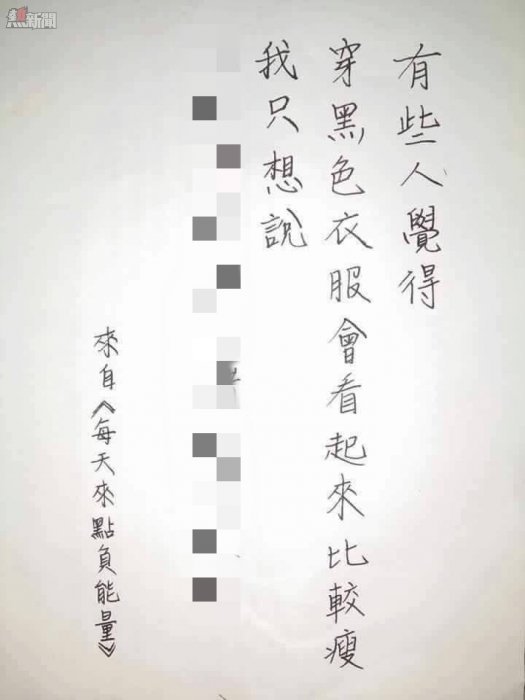 有些人覺得
穿黑色衣服會看起來比較瘦
我只想說
來自《每天來點負能量》
熱新聞